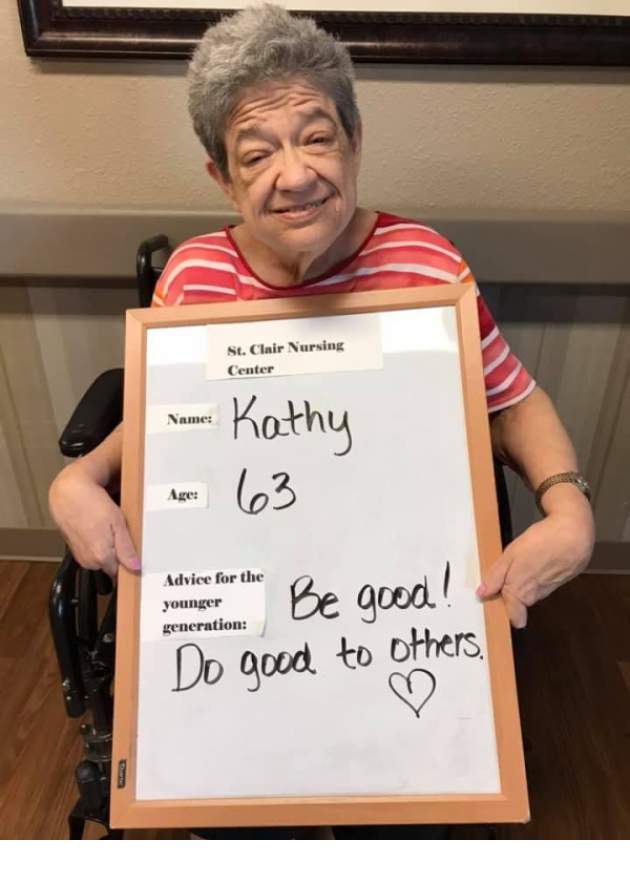 St. Clair Nursing
Center
Name: Kathy
Age: 63
Advice for the
younger
generation: Be good!
Do good to others.